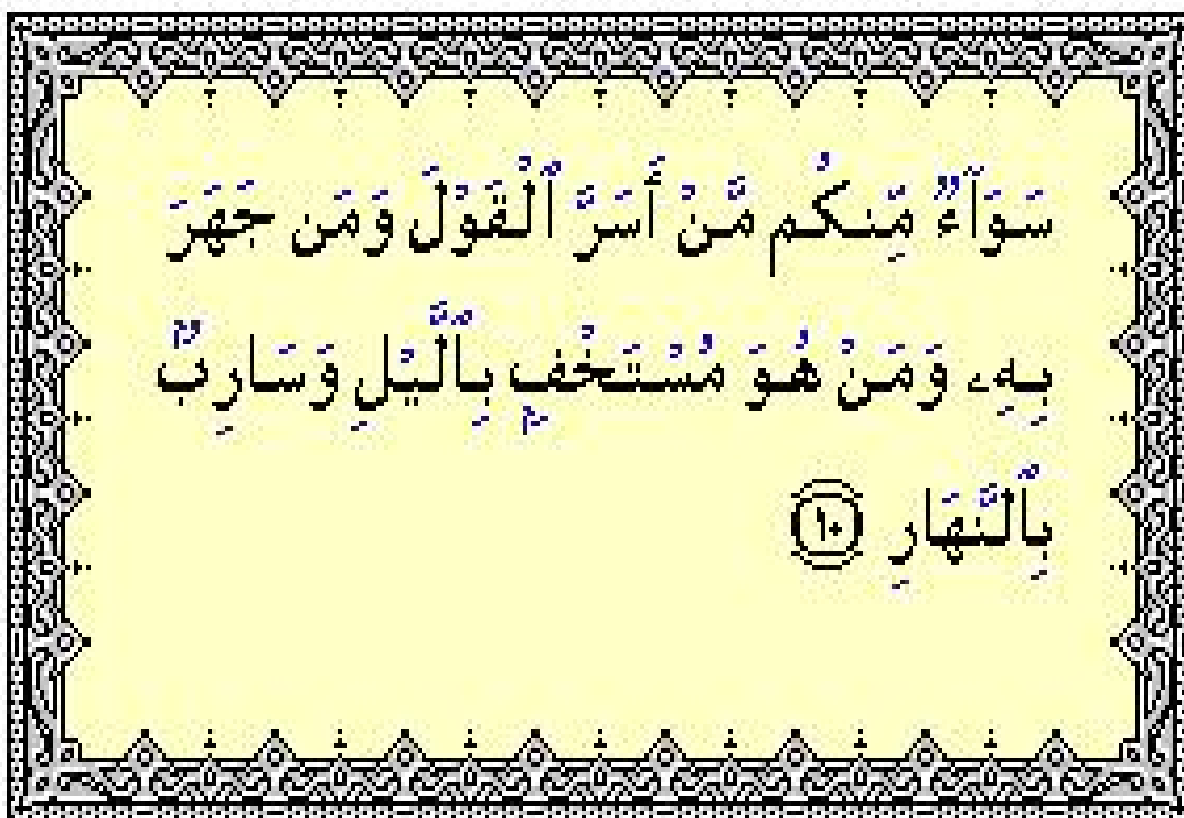 سَوَآءٌ مِّنكُم مَّنْ أَسَرَّ ٱلْقَوْلَ وَمَن جَهَرَ
بِهِۦ وَمَنْ هُوَ مُسْتَخْفٍۭ بِٱلَّيْلِ وَسَارِبٌۢ
بِٱلنَّهَارِ ١٠